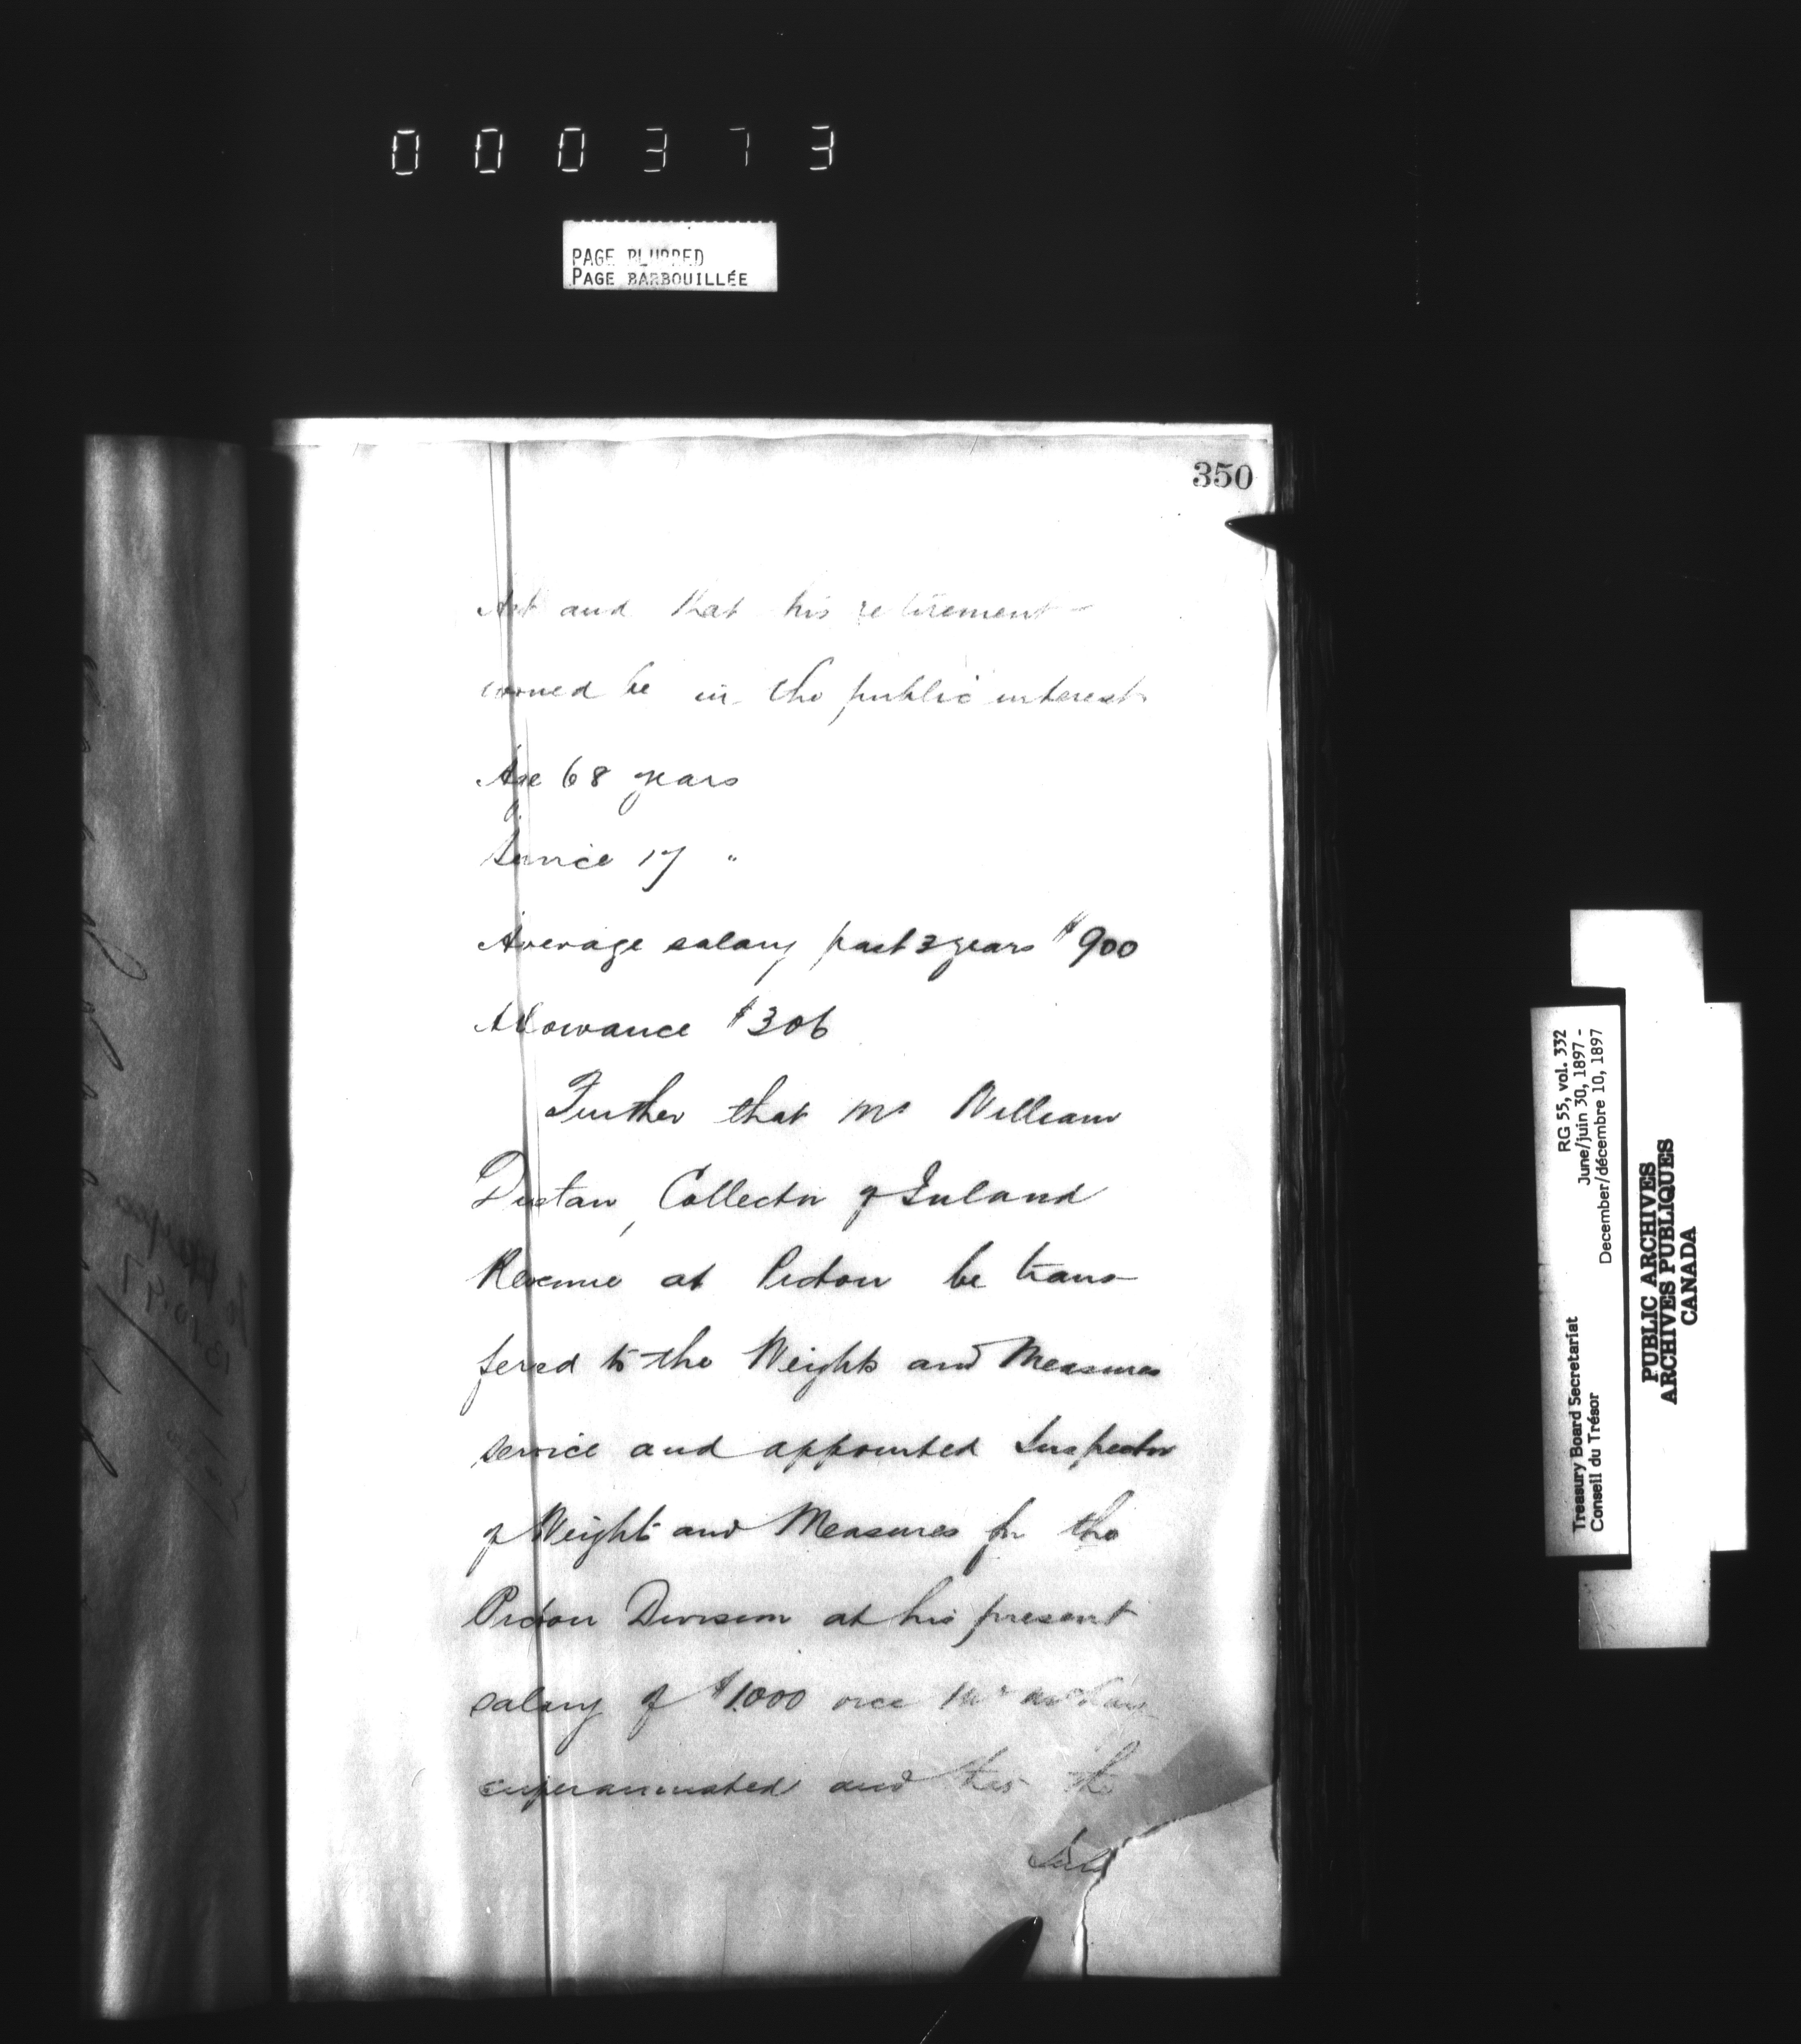 000373
PAGE BLURRED
PAGE BARBOUILLÉE
350
Act and that his retirement
would be in the public interest
Age 68 years
Service 17 "
Average salary past 3 years $900
Allowance $306
Further that Mr William
Dustan, Collector of Inland
Revenue at Pictou be trans
fered to the Weights and Measures
service and appointed Inspector
of Weights and Measures for the
Pictou Division at his present
salary of $1.000 vice Mr
superannuated and the
RG 55, vol. 332
June/juin 30, 1897 -
December/décembre 10, 1897
Treasury Board Secretariat
Conseil du Trésor
PUBLIC ARCHIVES
ARCHIVES PUBLIQUES
CANADA